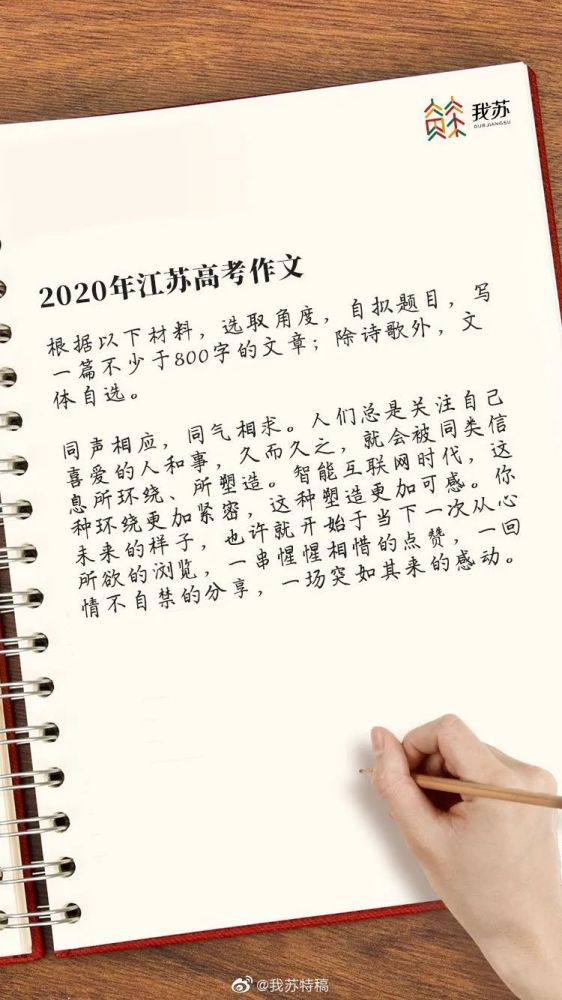 我苏
OURJIANGSU
2020年江苏高考作文
根据以下材料，选取角度，自拟题目，写
一篇不少于800字的文章；除诗歌外，文
体自选。
同声相应，同气相求。人们总是关注自己
喜爱的人和事，久而久之，就会被同类信
息所环绕、所塑造。智能互联网时代，这
种环绕更加紧密，这种塑造更加可感。你
未来的样子，也许就开始于当下一次从心
所欲的浏览，一串惺惺相惜的点赞，一回
情不自禁的分享，一场突如其来的感动。
@我苏特稿